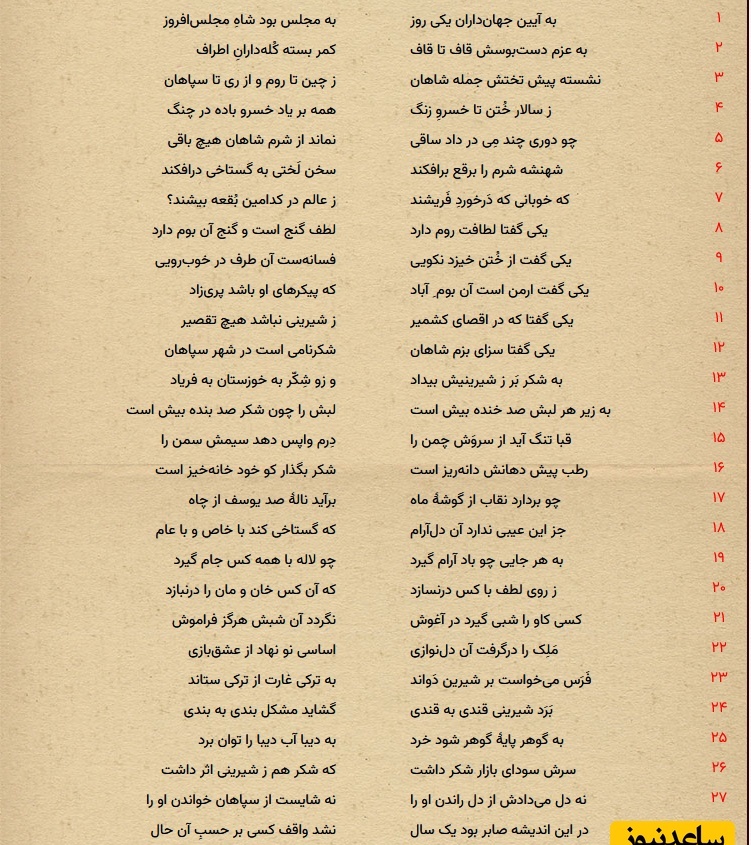 ۱ به آیین جهان‌داران یکی روز به مجلس بود شاهِ مجلس‌افروز
۲ به عزم دست‌بوسش قاف تا قاف کمر بسته کُله‌دارانِ اطراف
۳ نشسته پیش تختش جمله شاهان ز چین تا روم و از ری تا سپاهان
۴ ز سالار خُتن تا خسروِ زنگ همه بر یاد خسرو باده در چنگ
۵ چو دوری چند مِی در داد ساقی نماند از شرم شاهان هیچ باقی
۶ شهنشه شرم را برقع برافکند سخن لَختی به گستاخی درافکند
۷ که خوبانی که دَرخوردِ فَریشند ز عالم در کدامین بُقعه بیشند؟
۸ یکی گفتا لطافت روم دارد لطف گنج است و گنج آن بوم دارد
۹ یکی گفت از خُتن خیزد نکویی فسانه‌ست آن طرف در خوب‌رویی
۱۰ یکی گفت ارمن است آن بومِ آباد که پیکرهای او باشد پری‌زاد
۱۱ یکی گفتا که در اقصای کشمیر ز شیرینی نباشد هیچ تقصیر
۱۲ یکی گفتا سزای بزم شاهان شکرنامی است در شهر سپاهان
۱۳ به شکر بَر ز شیرینیش بیداد و زو شِکّر به خوزستان به فریاد
۱۴ به زیر هر لبش صد خنده بیش است لبش را چون شکر صد بنده بیش است
۱۵ قبا تنگ آید از سروَش چمن را دِرم واپس دهد سیمش سمن را
۱۶ رطب پیش دهانش دانه‌ریز است شکر بگذار کو خود خانه‌خیز است
۱۷ چو بردارد نقاب از گوشهٔ ماه برآید نالهٔ صد یوسف از چاه
۱۸ جز این عیبی ندارد آن دل‌آرام که گستاخی کند با خاص و با عام
۱۹ به هر جایی چو باد آرام گیرد چو لاله با همه کس جام گیرد
۲۰ ز روی لطف با کس درنسازد که آن کس خان و مان را درنبازد
۲۱ کسی کاو را شبی گیرد در آغوش نگردد آن شبش هرگز فراموش
۲۲ مَلِک را درگرفت آن دل‌نوازی اساسی نو نهاد از عشق‌بازی
۲۳ فَرَس می‌خواست بر شیرین دَواند به ترکی غارت از ترکی ستاند
۲۴ بَرَد شیرینی قندی به قندی گشاید مشکل بندی به بندی
۲۵ به گوهر پایهٔ گوهر شود خرد به دیبا آب دیبا را توان برد
۲۶ سرش سودای بازار شکر داشت که شکر هم ز شیرینی اثر داشت
۲۷ نه دل می‌دادش از دل راندن او را نه شایست از سپاهان خواندن او را
در این اندیشه صابر بود یک سال نشد واقف کسی بر حسبِ آن حال
ساعدنیوز